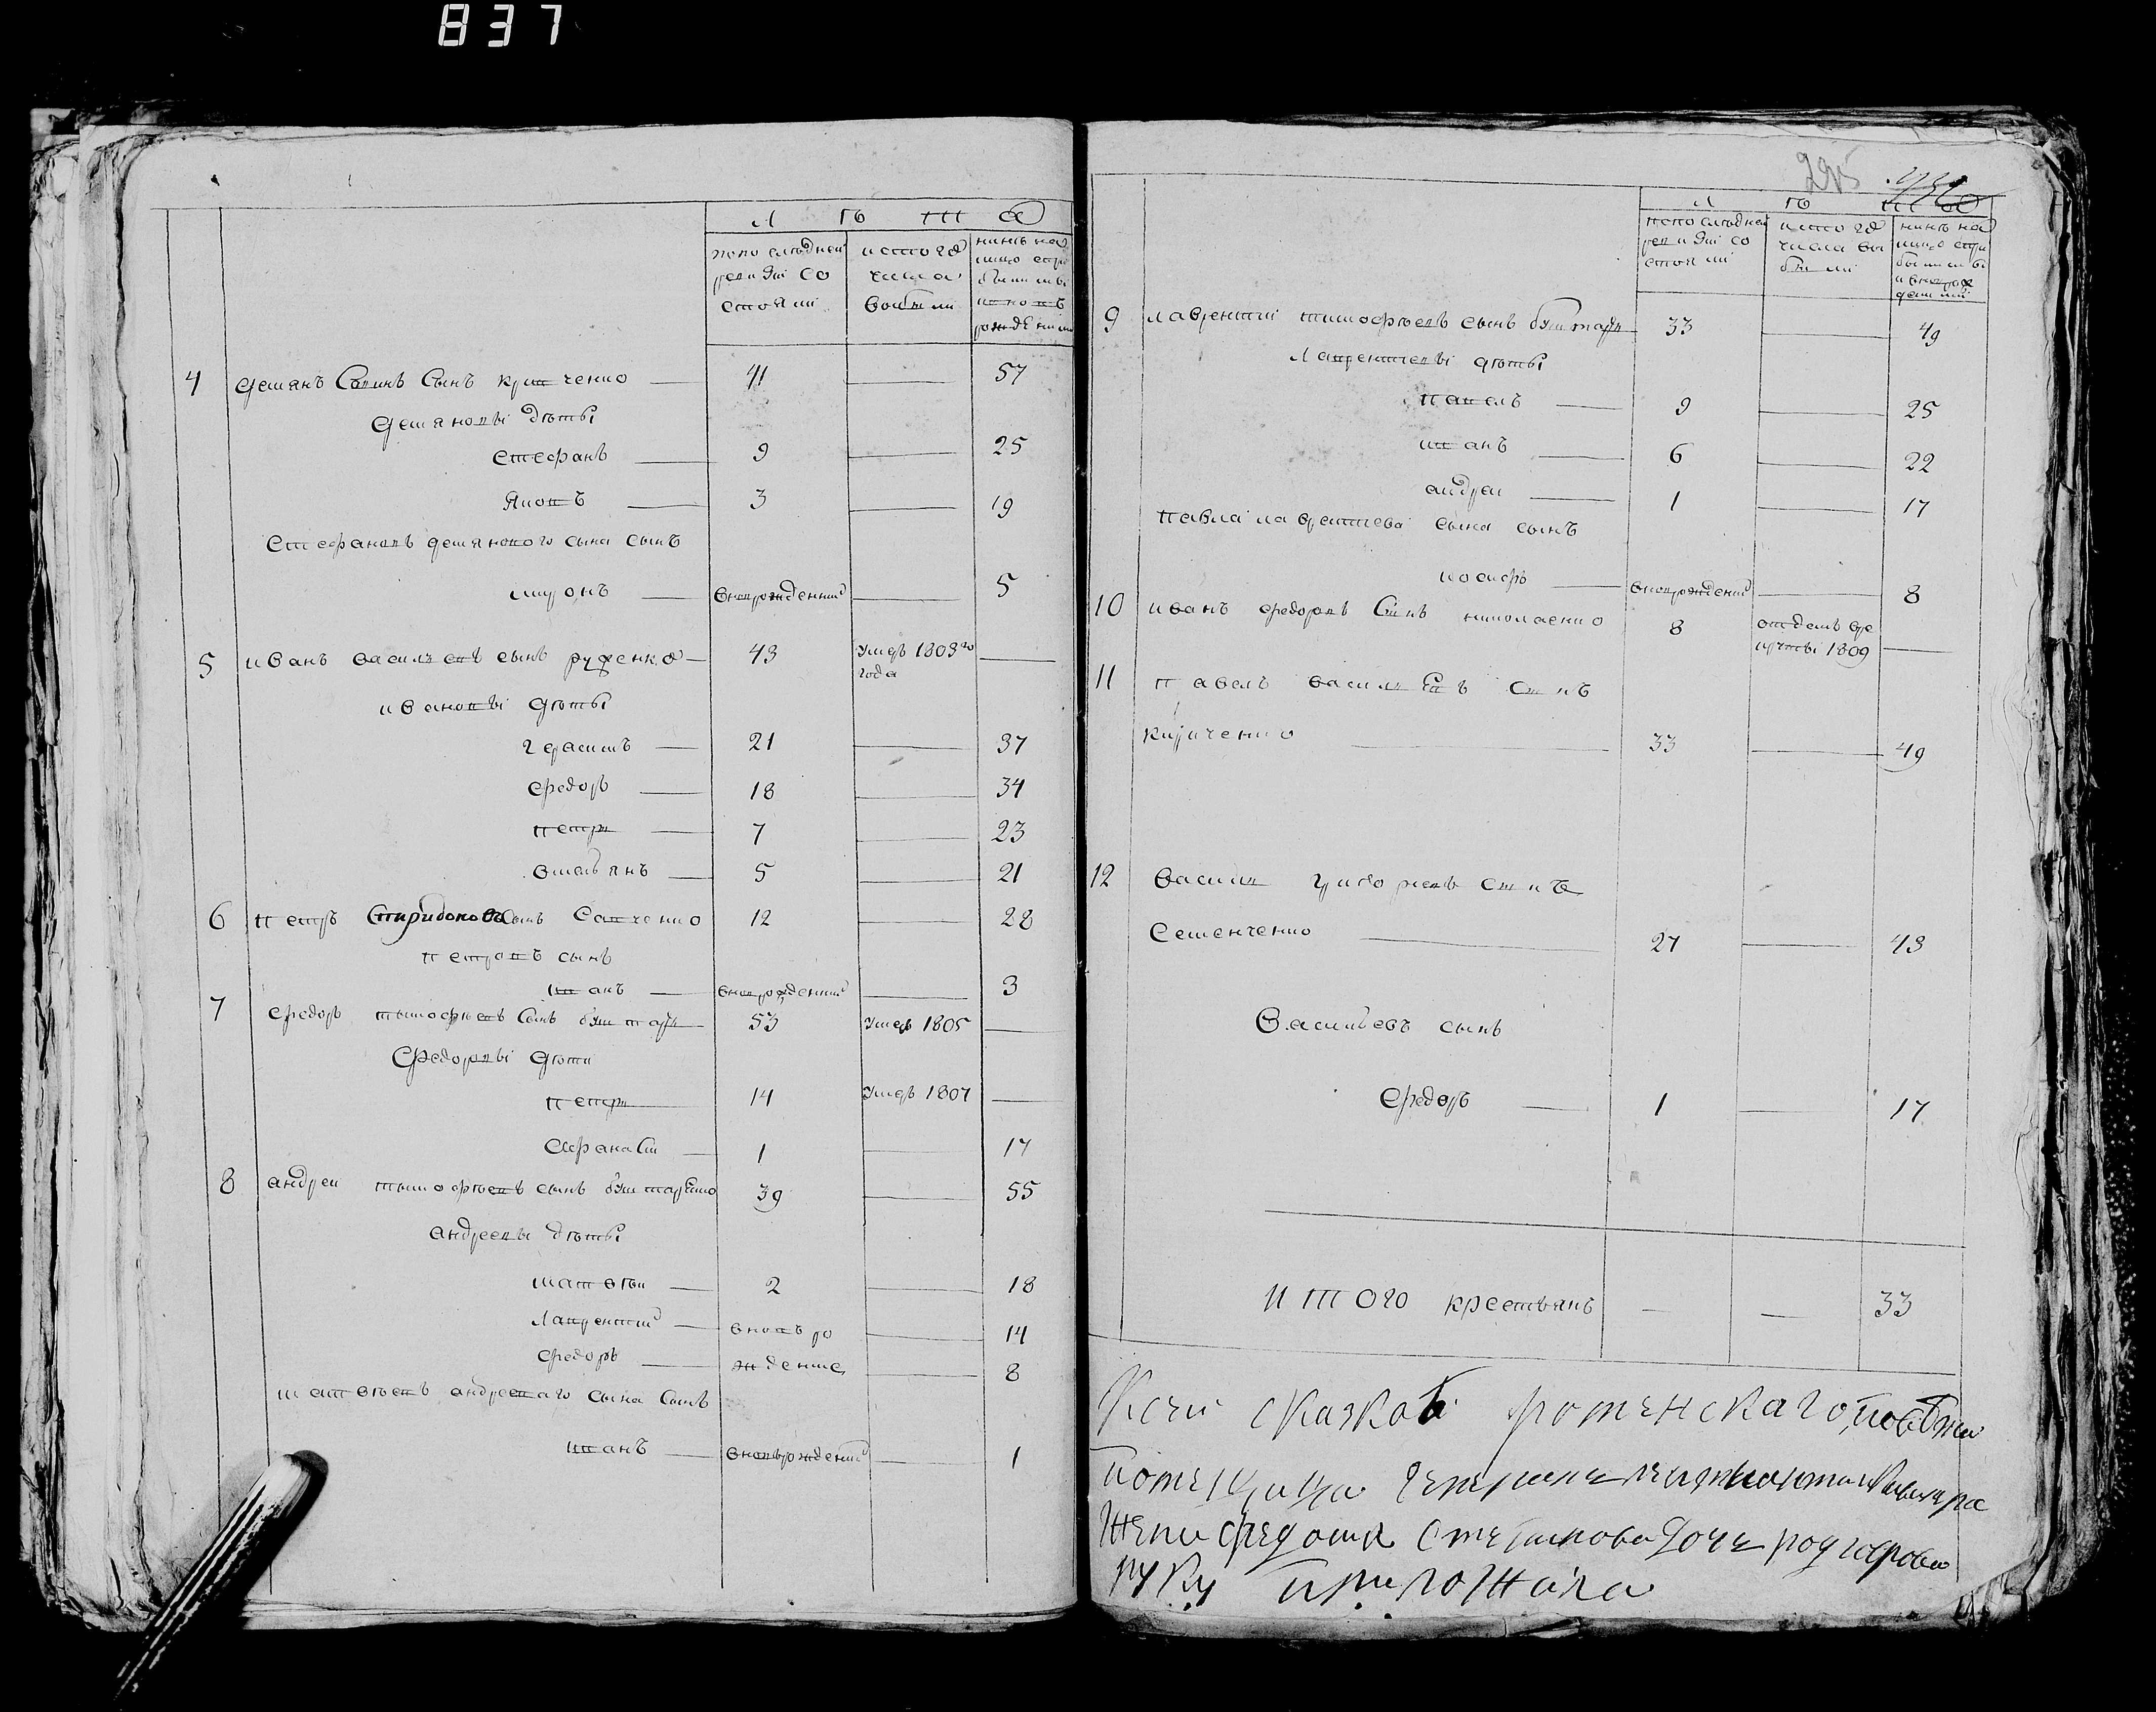 837
Л Ѣ Т А
по последней ревизіи состояли
исто го числа выбыли
нынѣ на лицо с прибылыми и новорожденными
4 демянъ Савинъ Сынъ кривченко — 41 — 57
демяновы дѣты
стефанъ — 9 — 25
Яковъ — 3 — 19
стефановъ демянового сына сынъ
миронъ — вноврожденний — 5
5 иванъ василъевъ сынъ руденко — 43 умеръ 1808го года —
ивановы дѣты
герасимъ — 21 — 37
федоръ — 18 — 34
петръ — 7 — 23
омелянъ — 5 — 21
6 петръ Спиридоновъ Сынъ Савченко 12 — 28
петровъ сынъ
иванъ — вноврожденний — 3
7 федоръ тымофѣевъ Сынъ 53 умеръ 1805 —
Федоровы дѣти
петръ 14 умеръ 1807 —
Афанасій — 1 — 17
8 андреи тымофѣевъ сынъ 39 — 55
андреевы дѣты
матвѣи — 2 — 18
Лаврентий — вновъ ро — 14
федоръ — ждение — 8
матвѣевъ андрееваго сына Сынъ
иванъ — вновърождений — 1
295
Л Ѣ Т А
по последней ревизіи состояли
исто го числа выбыли
нынѣ на лицо с прибылыми и вноврожденний
9 лаврентій тимофѣевъ сынъ 33 — 49
Лаврентиевы дѣты
павелъ — 9 — 25
иванъ — 6 — 22
андреи — 1 — 17
павла лаврентиева сына сынъ
иосифъ — вноврождений — 8
10 иванъ федоровъ Синъ николаенко 8 отданъ в рекруты 1809 —
11 павелъ василиевъ синъ
кириченко — 33 — 49
12 васили григориевъ синъ
Семенченко — 27 — 43
Василъевъ сынъ
федоръ — 1 — 17
ИТОГО крестьянъ — — 33
Ксеи сказкѣ роменского повѣта
помещица
жена федосия Степанова дочь
руку приложила